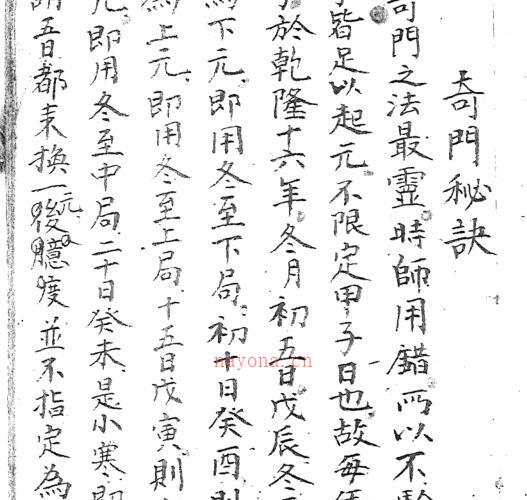 奇門秘訣
奇門之法最靈時師用錯所以不
皆足以起元不限定甲子日也故每
於乾隆十六年冬月初五日戊辰冬
為下元即用冬至下局初十日癸酉則
為上元即用冬至上局十五日戊寅則
元即用冬至中局二十日癸未是小寒即
五日都来換一元後臆度並不指定為
nayona.cn